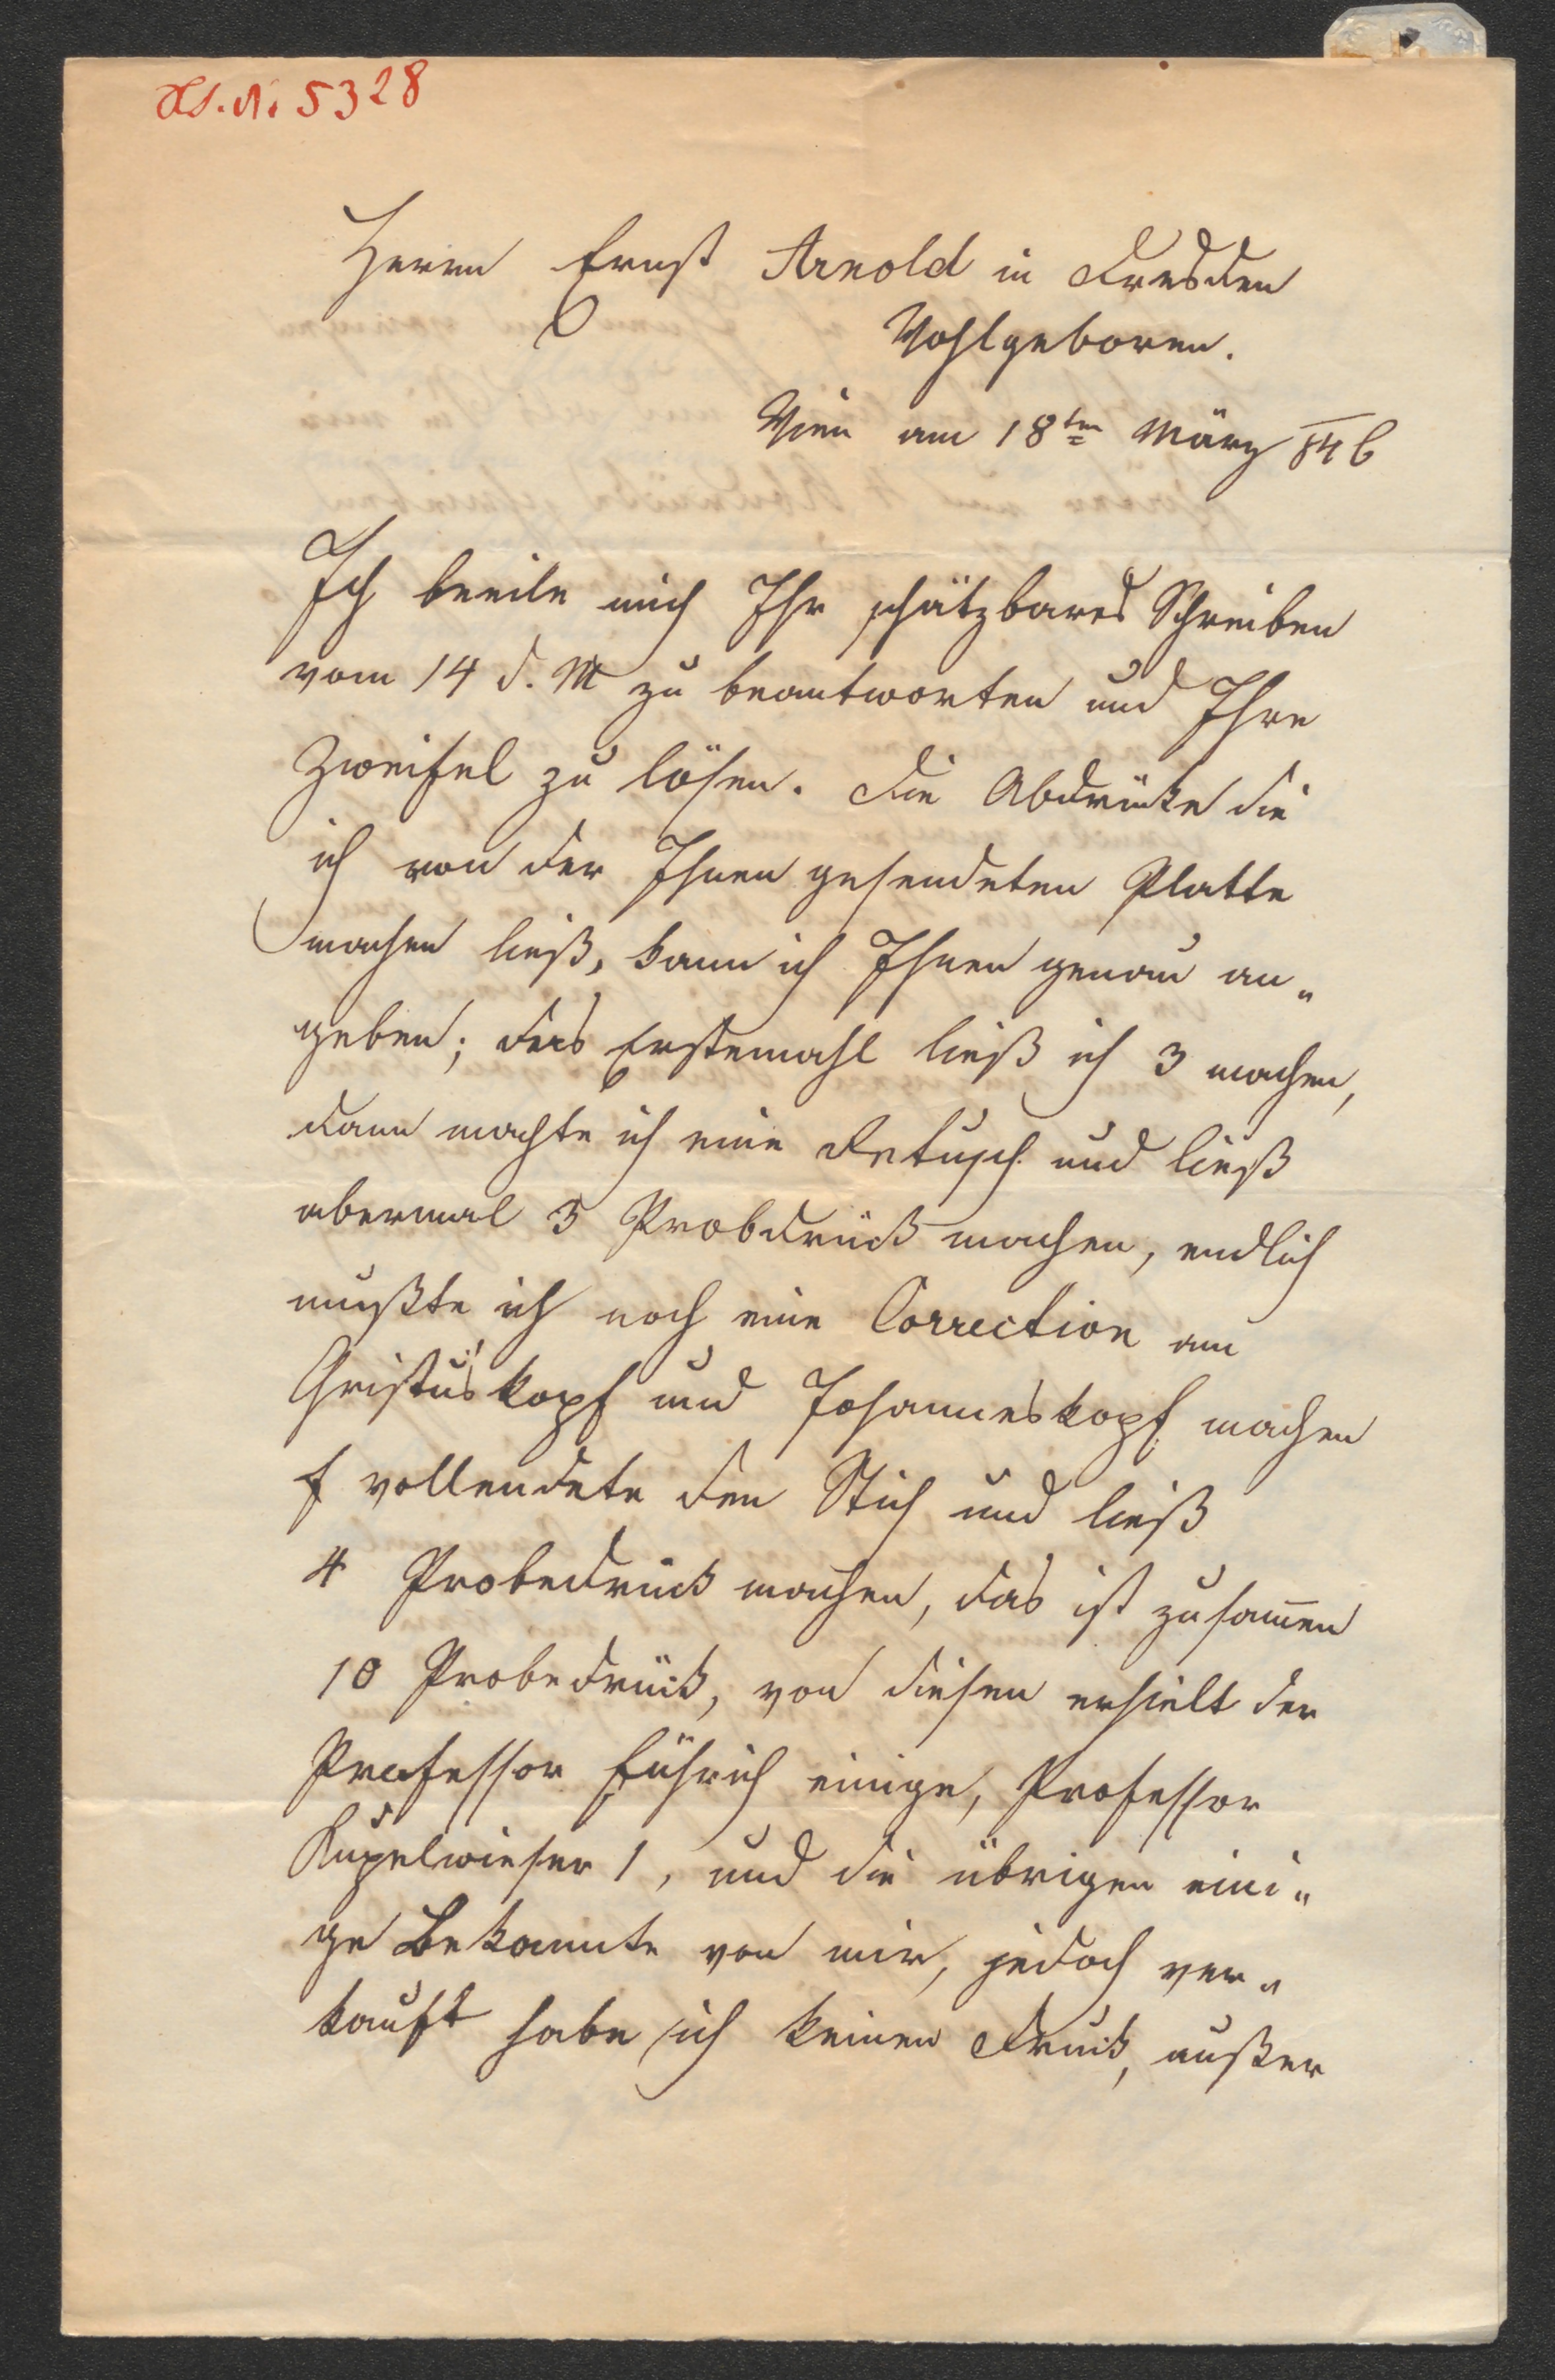 Hs. N. 5328
Herrn Ernst Arnold in Dresden
Wohlgeboren.
Wien am 18ten März 846
Ich beeile mich Ihr schätzbares Schreiben
vom 14 d. M zu beantworten und Ihre
Zweifel zu lösen. Die Abdrücke die
ich von der Ihnen gesendeten Platte
machen ließ, kann ich Ihnen genau an„
geben; das Erstemahl ließ ich 3 machen,
dann machte ich eine Retusch und ließ
abermal 3 Probdrück machen, endlich
mußte ich noch eine Correction am
Christuskopf und Johanneskopf machen
vollendete den Stich und ließ
4 Probedrück machen, das ist zusam̅en
10 Probedrück, von diesen erhielt der
Professor Führich einige, Professor
Kupelwieser 1, und die übrigen eini„
ge Bekannte von mir, jedoch ver„
kauft habe ich keinen Druck, außer